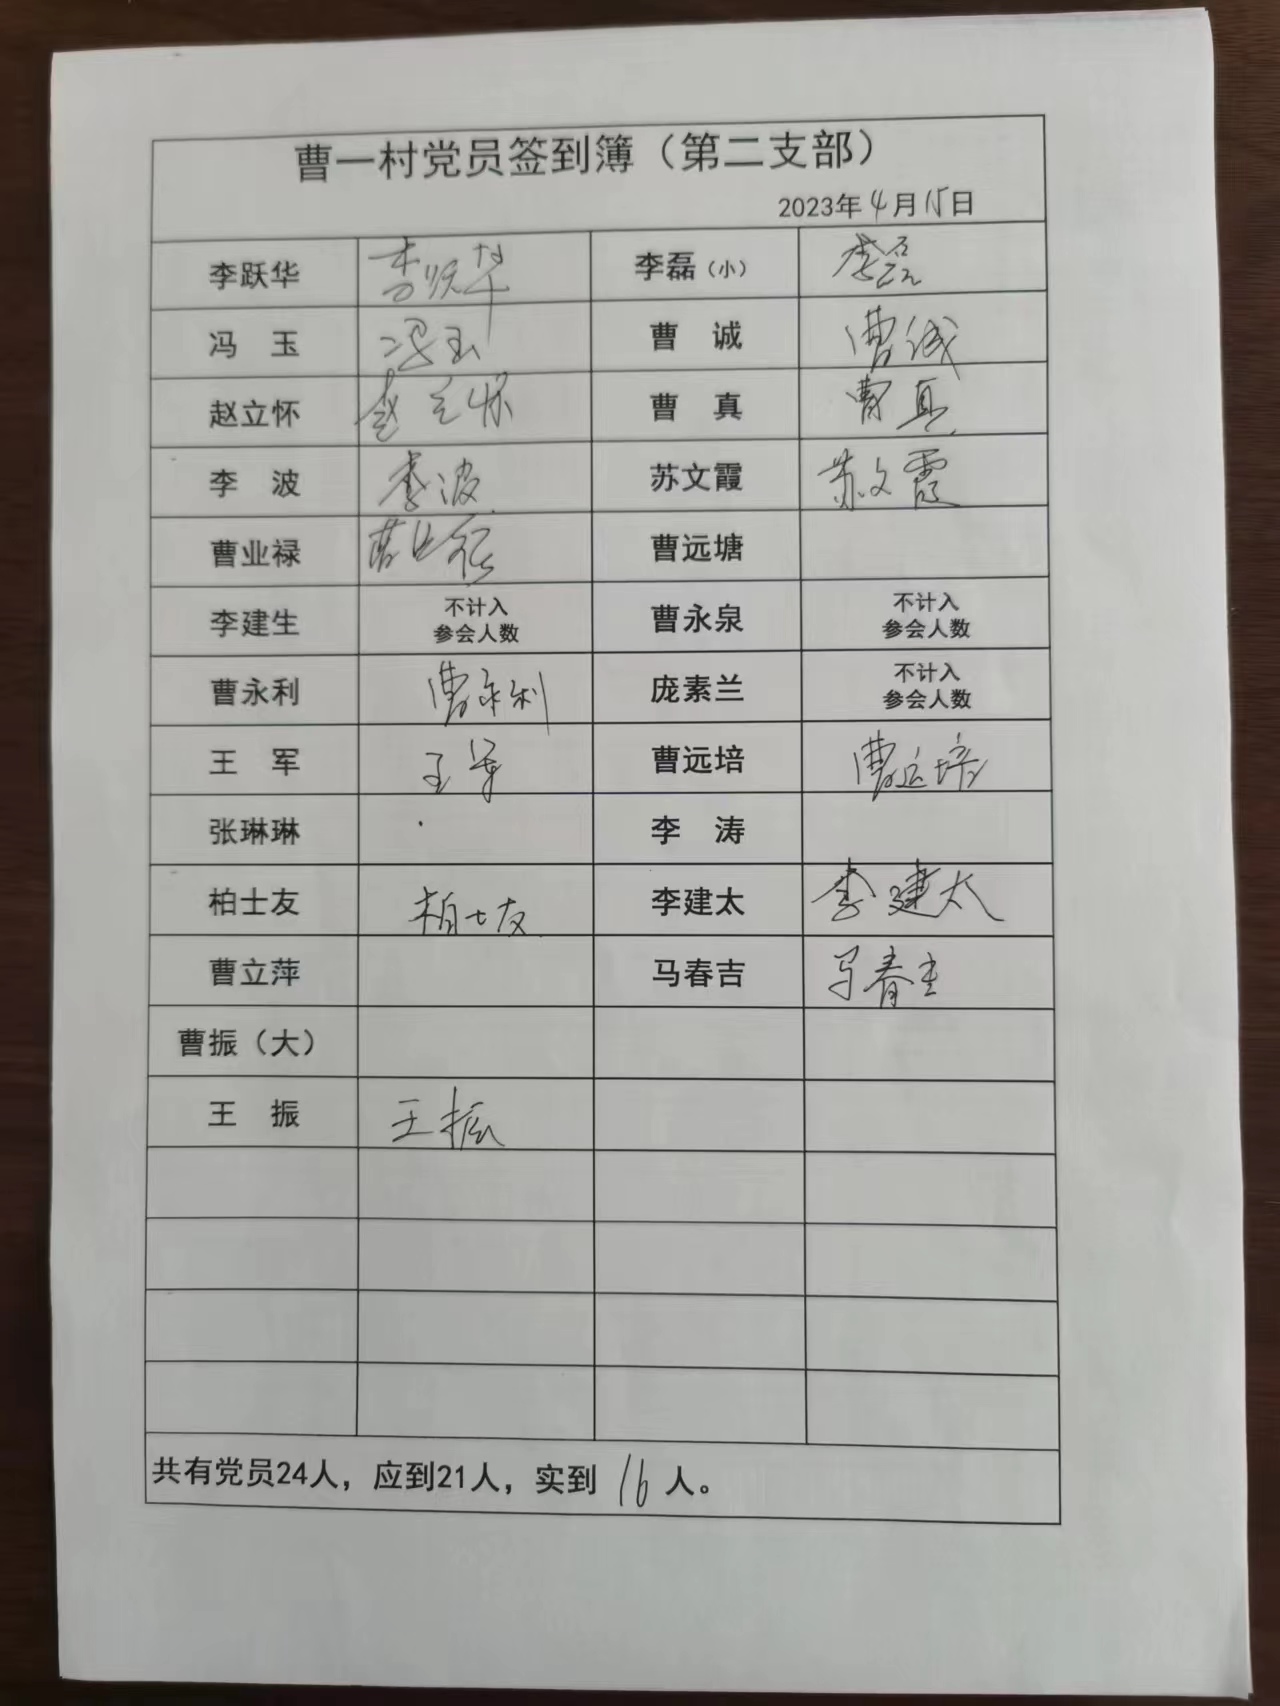 曹一村党员签到簿（第二支部）
2023年4月15日
李跃华 李跃华 李磊（小） 李磊
冯 玉 冯玉 曹 诚 曹诚
赵立怀 赵立怀 曹 真 曹真
李 波 李波 苏文霞 苏文霞
曹业禄 曹业禄 曹远塘
李建生 不计入 曹永泉 不计入
参会人数 参会人数
曹永利 曹永利 庞素兰 不计入
参会人数
王 军 王军 曹远培 曹远培
张琳琳 李 涛
柏士友 柏士友 李建太 李建太
曹立萍 马春吉 马春吉
曹振（大）
王 振 王振
共有党员24人，应到21人，实到 16 人。